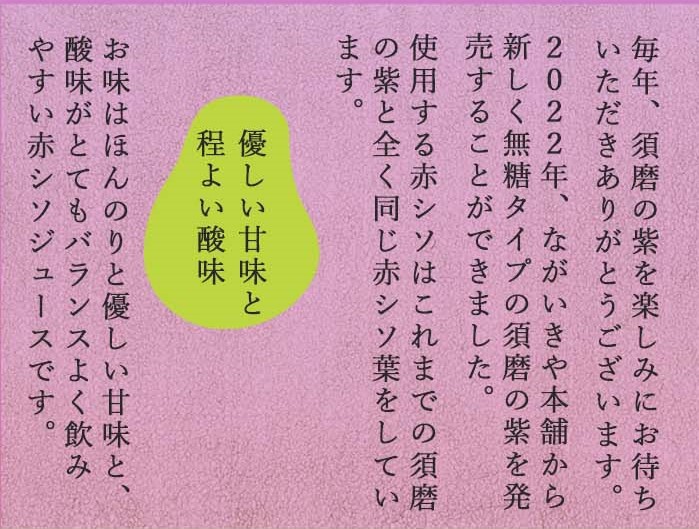 毎年、須磨の紫を楽しみにお待ち
いただきありがとうございます。
2022年、ながいきや本舗から
新しく無糖タイプの須磨の紫を発
売することができました。
使用する赤シソはこれまでの須磨
の紫と全く同じ赤シソ葉をしてい
ます。
優しい甘味と
程よい酸味
お味はほんのりと優しい甘味と、
酸味がとてもバランスよく飲み
やすい赤シソジュースです。